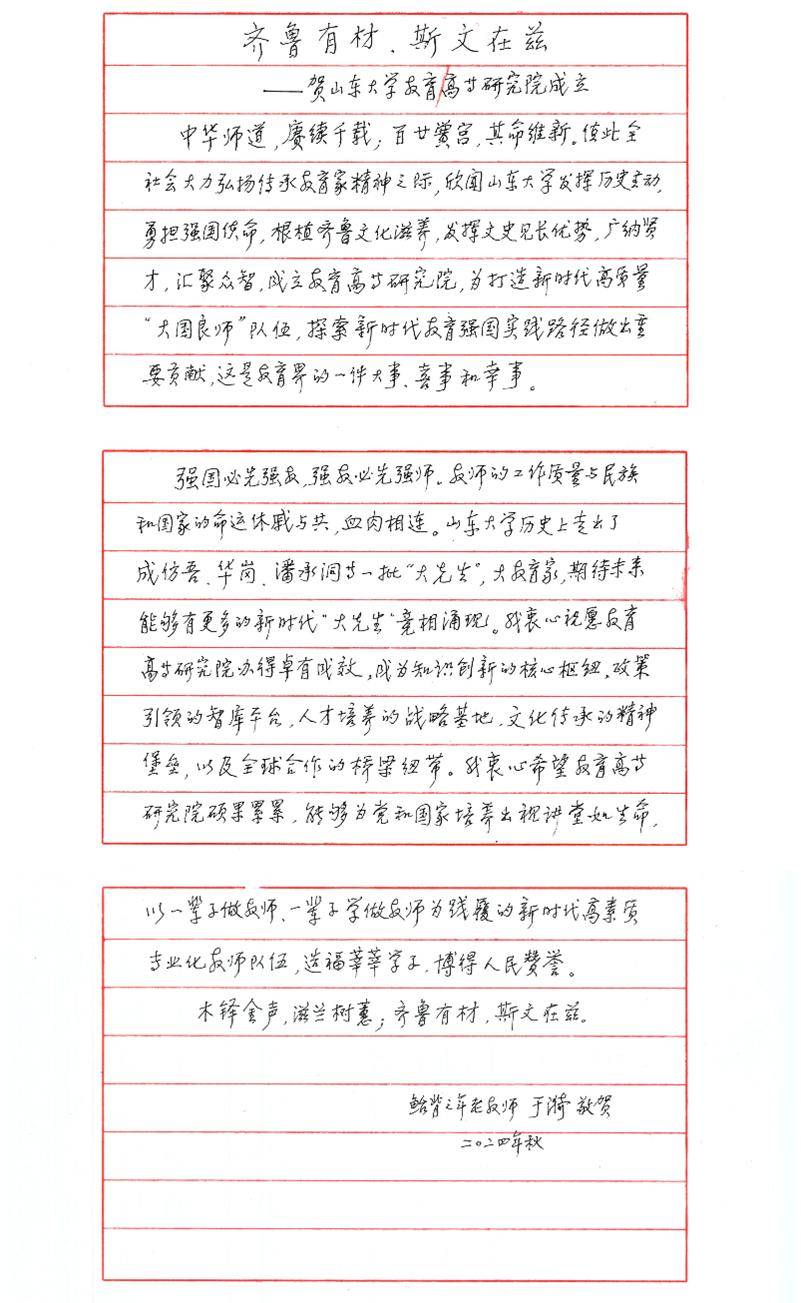 齐鲁有材、斯文在兹
——贺山东大学教育高等研究院成立
中华师道，赓续千载；百廿黉宫，其命维新。值此全
社会大力弘扬传承教育家精神之际，欣闻山东大学发挥历史主动，
勇担强国使命，根植齐鲁文化滋养，发挥文史见长优势，广纳贤
才，汇聚众智，成立教育高等研究院，为打造新时代高质量
“大国良师”队伍，探索新时代教育强国实践路径做出重
要贡献，这是教育界的一件大事、喜事和幸事。
强国必先强教，强教必先强师。教师的工作质量与民族
和国家的命运休戚与共，血肉相连。山东大学历史上走出了
成仿吾、华岗、潘承洞等一批“大先生”，大教育家，期待未来
能够有更多的新时代“大先生”竞相涌现。我衷心祝愿教育
高等研究院办得卓有成效，成为知识创新的核心枢纽，政策
引领的智库平台，人才培养的战略基地，文化传承的精神
堡垒，以及全球合作的桥梁纽带。我衷心希望教育高等
研究院硕果累累，能够为党和国家培养出视讲堂如生命，
以一辈子做教师、一辈子学做教师为践履的新时代高素质
专业化教师队伍，造福莘莘学子，博得人民赞誉。
木铎金声，滋兰树蕙；齐鲁有材，斯文在兹。
鲐背之年老教师 于漪 敬贺
二〇二四年秋